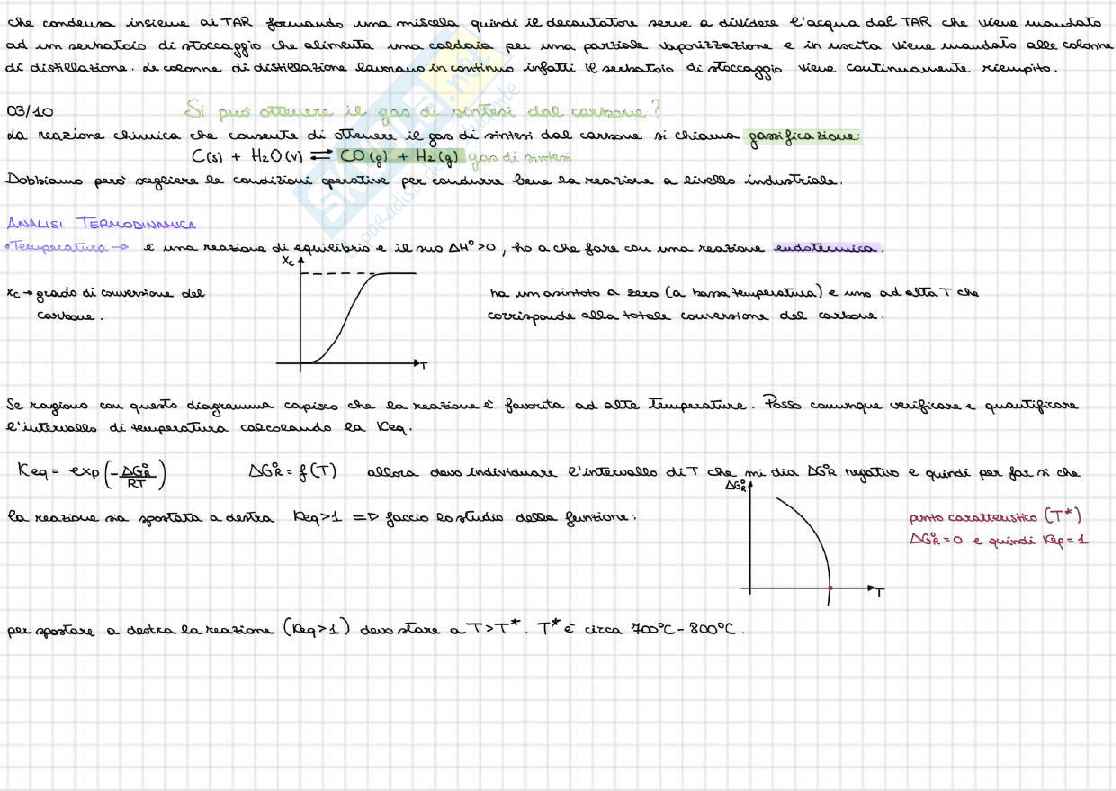 che condensa insieme ai TAR formando una miscela quindi il decantatore serve a dividere l'acqua dal TAR che viene mandato
ad un serbatoio di stoccaggio che alimenta una caldaia per una parziale vaporizzazione e in uscita viene mandato alle colonne
di distillazione. Le colonne di distillazione lavorano in continuo infatti il serbatoio di stoccaggio viene continuamente riempito.
03/10 Si può ottenere il gas di sintesi dal carbone?
La reazione chimica che consente di ottenere il gas di sintesi dal carbone si chiama gassificazione:
C(s) + H2O(v) ⇌ CO(g) + H2(g) gas di sintesi
Dobbiamo però scegliere le condizioni operative per condurre bene la reazione a livello industriale.
ANALISI TERMODINAMICA
•Temperatura → è una reazione di equilibrio e il suo ΔH°>0, ho a che fare con una reazione endotermica.
Xc
xc → grado di conversione del
carbone.
ha un asintoto a zero (a bassa temperatura) e uno ad alta T che
corrisponde alla totale conversione del carbone.
T
Se ragiono con questo diagramma capisco che la reazione è favorita ad alte temperature. Posso comunque verificare e quantificare
l'intervallo di temperatura calcolando la Keq.
Keq = exp(-ΔG°R/RT) ΔG°R = f(T) allora devo individuare l'intervallo di T che mi dia ΔG°R negativo e quindi per far sì che
la reazione sia spostata a destra Keq>1 => faccio lo studio della funzione.
ΔG°R
punto caratteristico (T*)
ΔG°R=0 e quindi Keq=1
T
per spostare a destra la reazione (Keq>1) devo stare a T>T*. T* è circa 700°C-800°C.